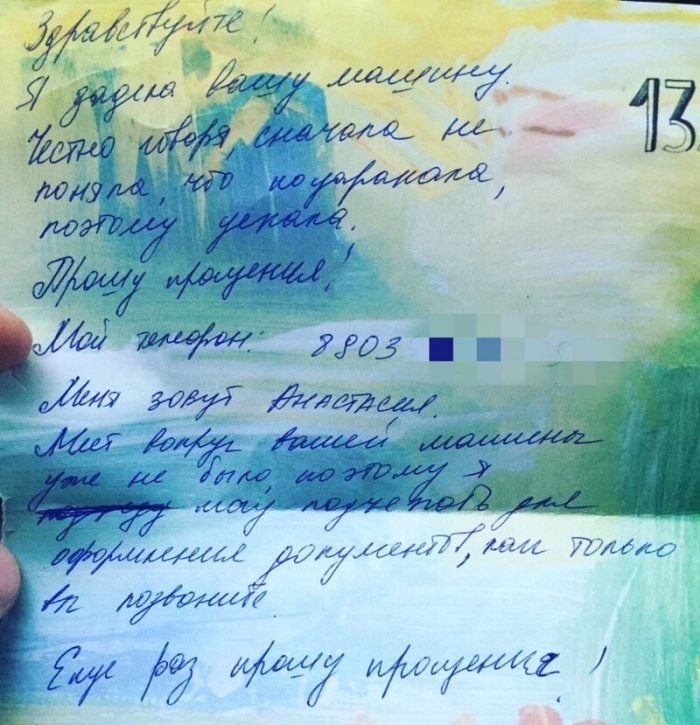 Здравствуйте!
Я задела вашу машину.
13
Честно говоря, сначала не
поняла, что поцарапала,
поэтому уехала.
Прошу прощения!
Мой телефон: 8903
Меня зовут Анастасия.
Мест вокруг вашей машины
уже не было, поэтому я
могу подъехать для
оформления документов, как только
вы позвоните.
Еще раз прошу прощения!